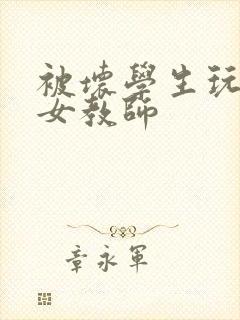 被壞學生玩
女教師
章永軍